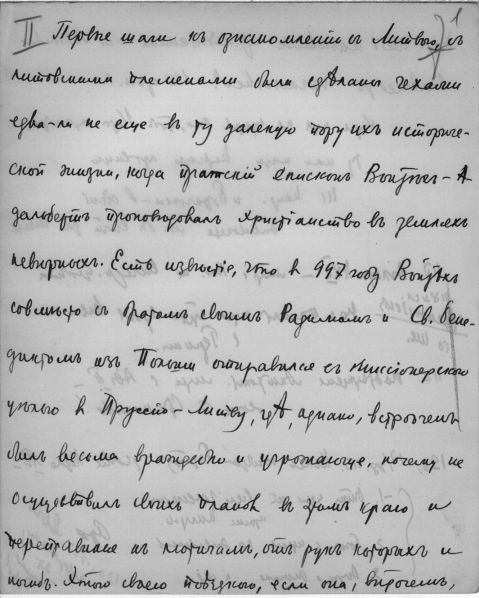 1
II Первые шаги къ ознакомленію съ Литвою, съ
литовскими племенами были сдѣланы чехами
едва-ли не еще въ ту далекую пору ихъ историче-
ской жизни, когда пражскій епископъ Войтѣхъ-А-
дальбертъ проповѣдовалъ христіанство въ земляхъ
невѣрныхъ. Есть извѣстіе, что в 997 году Войтѣхъ
совмѣстно съ братомъ своимъ Радимомъ и Св. Бене-
диктомъ изъ Польши отправился съ миссіонерскою
цѣлью в Пруссію-Литву, гдѣ, однако, встрѣченъ
былъ весьма враждебно и угрожающе, почему не
осуществилъ своихъ плановъ въ этомъ краю и
переправился къ лютичамъ, отъ рукъ которыхъ и
погибъ. Этою своею поѣздкою, если она, впрочемъ,